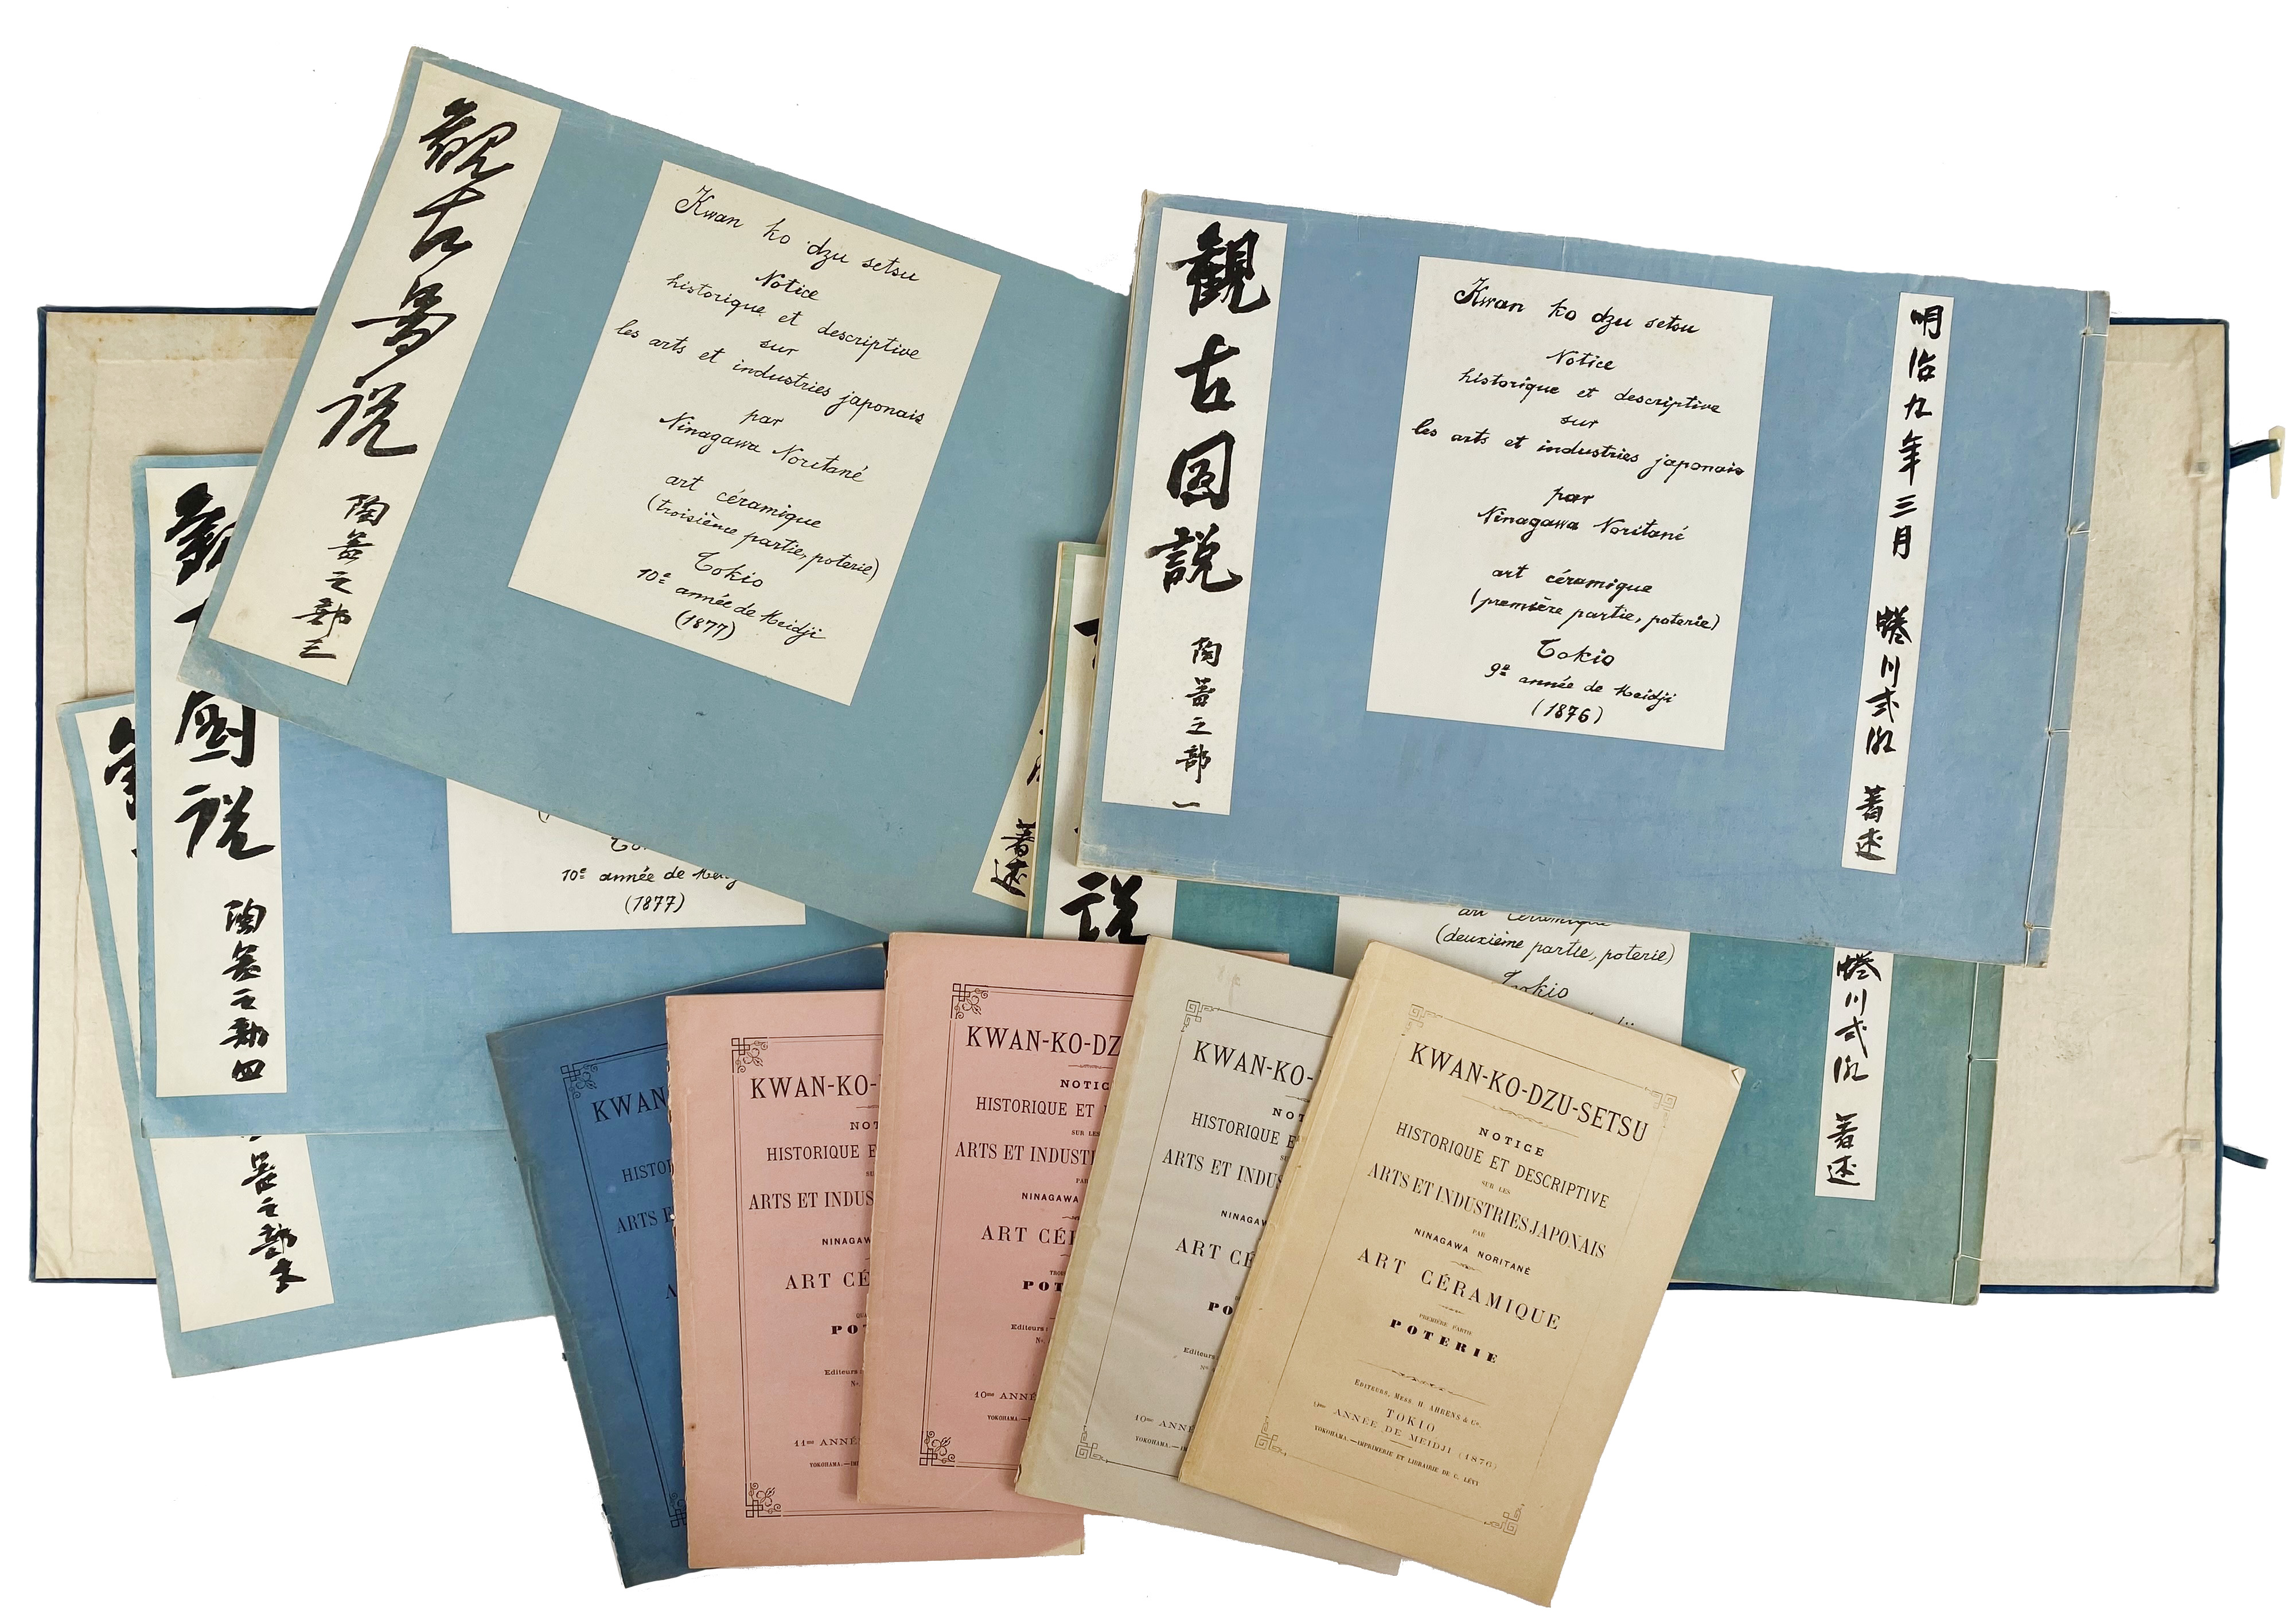 觀古啚説
陶器之部三
Kwan ko dzu setsu
Notice
historique et descriptive
sur
les arts et industries japonais
par
Ninagawa Noritané
art céramique
(troisième partie, poterie)
Tokio
10e année de Meidji
(1877)
觀古図説
陶器之部一
Kwan ko dzu setsu
Notice
historique et descriptive
sur
les arts et industries japonais
par
Ninagawa Noritané
art céramique
(première partie, poterie)
Tokio
9e année de Meidji
(1876)
明治九年三月 蜷川式胤 著述
説
陶器之部四
10e année de
(1877)
著述
説
art céramique
(deuxième partie, poterie)
Tokio
蜷川式胤 著述
器之部
KWAN
ARTS
KWAN-KO-
HISTORIQUE
ARTS ET
ART
11me
YOKOHAMA.
KWAN-KO-
NOTIC
HISTORIQUE ET
SUR LES
ARTS ET
PAR
NINAGAWA
ART
Editeurs
10me
YOKOHAMA.
KWAN-KO-
HISTORIQUE
ARTS ET
ART
Editeurs
10me
YOKOHAMA.
KWAN-KO-DZU-SETSU
NOTICE
HISTORIQUE ET DESCRIPTIVE
SUR LES
ARTS ET INDUSTRIES JAPONAIS
PAR
NINAGAWA NORITANÉ
ART CÉRAMIQUE
PREMIÈRE PARTIE
POTERIE
EDITEURS, MESS. H. AHRENS & Co.
TOKIO
9me ANNÉE DE MEIDJI (1876)
YOKOHAMA.—IMPRIMERIE ET LIBRAIRIE DE C. LÉVY